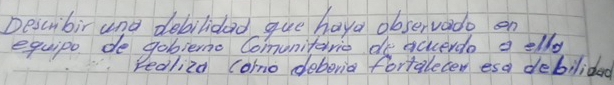 Describir una debilidad que haya observado en
equipo de gobierno Comunitario de acuerdo a ella
Realiza como deberia fortalecer esa debilidad